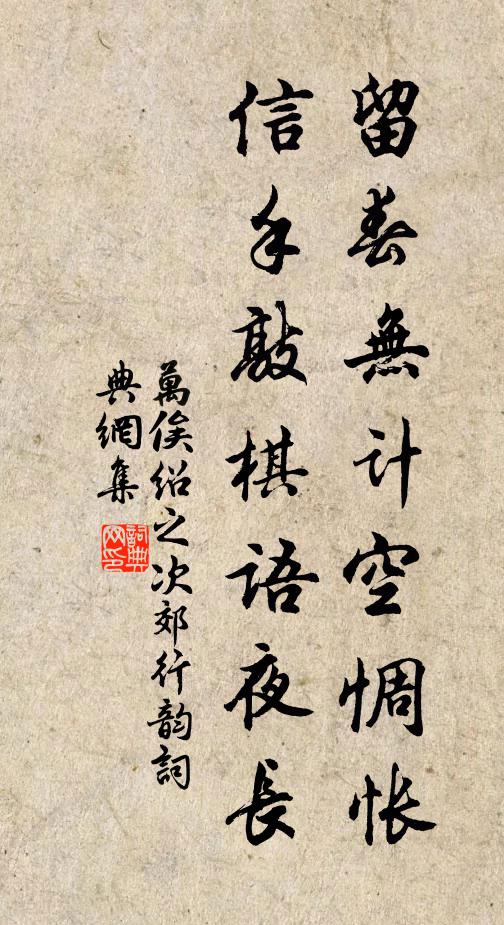 留春無計空惆悵
信手敲棋語夜長
萬俟绍之次郊行韵詞
典網集
詞典
网印